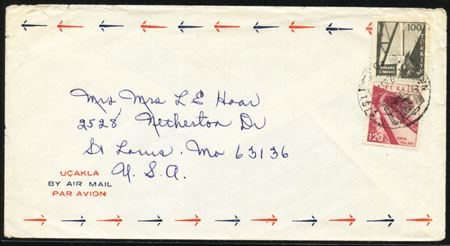 100
TÜRKİYE
120
Mrs Mrs L E Hoar
2528 Netherton Dr
St Louis, Mo 63136
U. S. A.
UÇAKLA
BY AIR MAIL
PAR AVION